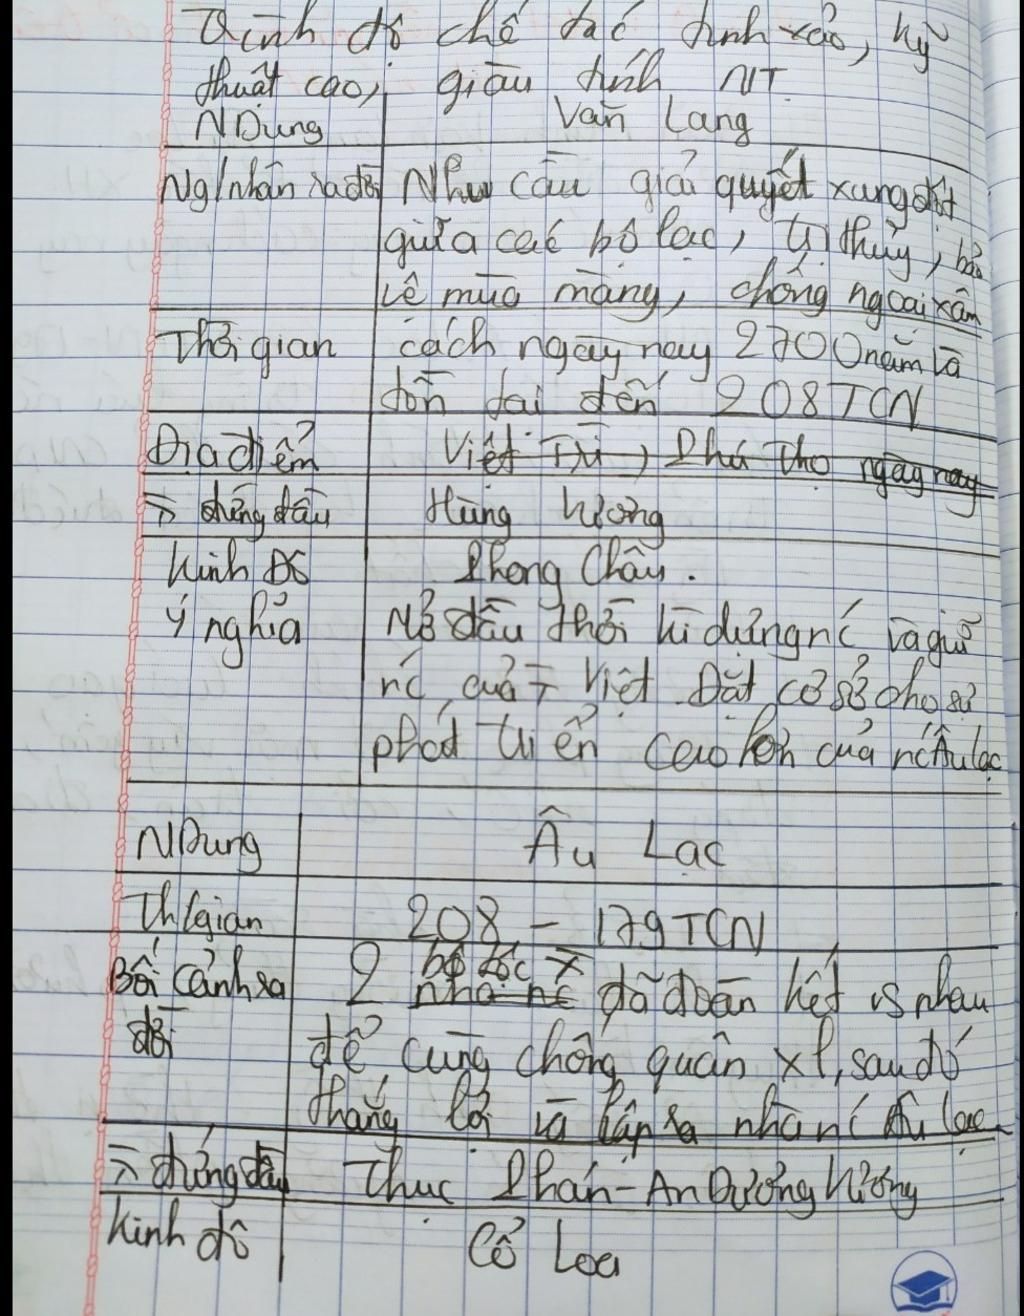 Trình độ chế tác tinh xảo, kỹ
thuật cao, giàu tính NT
NDung Văn Lang
Ng/nhân ra đời Nhu cầu giải quyết xung đột
giữa các bộ lạc, trị thủy, bảo
vệ mùa màng, chống ngoại xâm
Thời gian cách ngày nay 2700 năm và
tồn tại đến 208 TCN
Địa điểm Việt Trì, Phú Thọ ngày nay
đứng đầu Hùng Vương
Kinh Đô Phong Châu.
Ý nghĩa Mở đầu thời kì dựng nc và giữ
nc của Việt Đặt cơ sở cho sự
phát triển cao hơn của nc Âu lạc
NDung Âu Lạc
Th/gian 208 - 179 TCN
bộ tộc
Bối cảnh ra 2 nhà nc đã đoàn kết vs nhau
đời để cùng chống quân xl, sau đó
thắng lợi và lập ra nhà nc Âu lạc
đứng đầu Thục Phán - An Dương Vương
Kinh đô Cổ Loa